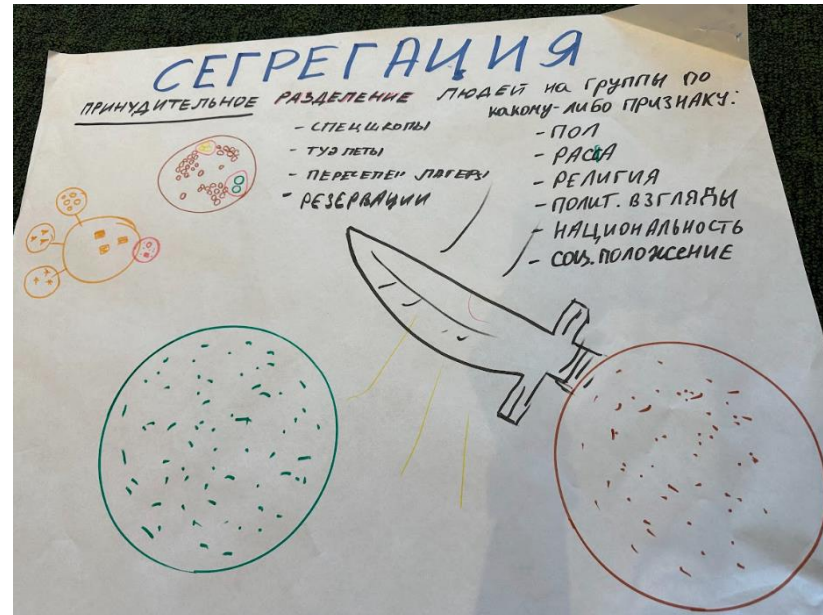 СЕГРЕГАЦИЯ
ПРИНУДИТЕЛЬНОЕ РАЗДЕЛЕНИЕ ЛЮДЕЙ на ГРУППЫ ПО
какому-либо ПРИЗНАКУ:
- СПЕЦШКОЛЫ
- ТУАЛЕТЫ
- ПЕРЕСЕЛЕН ЛАГЕРЯ
- РЕЗЕРВАЦИИ
- ПОЛ
- РАСА
- РЕЛИГИЯ
- ПОЛИТ. ВЗГЛЯДЫ
- НАЦИОНАЛЬНОСТЬ
- СОЦ. ПОЛОЖЕНИЕ